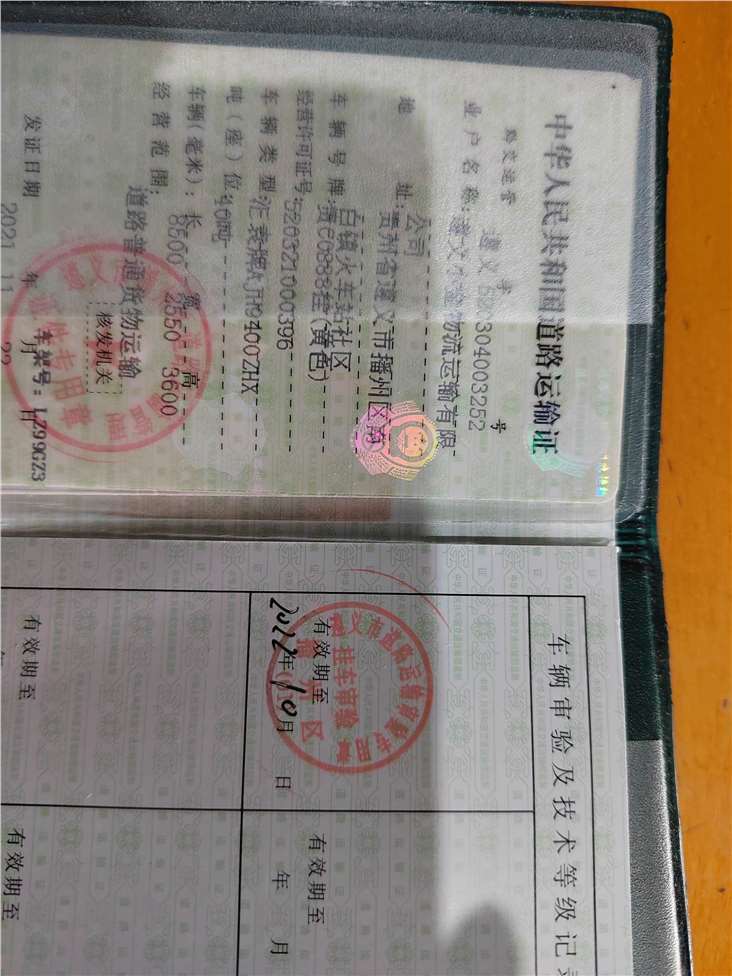 中华人民共和国道路运输证
黔交运管 遵义 字 520304003252 号
业户名称:遵义 金物流运输有限
公司
地 址:贵州省遵义市播州区南
白镇火车站社区
车辆号牌: (黄色)
经营许可证号:520321000396
车辆类型:汇 牌 JH9400ZHX
吨(座)位:40吨
车辆(毫米):长 8500 宽 2550 高 3600
经营范围:道路普通货物运输
核发机关
车架号:LZ99GZ3
发证日期 2021 年 11 月 29 日
车辆审验及技术等级记录
有效期至
2022年10月 日
遵义市道路运输 专用章
挂车审验
有效期至
年 月
有效期至
有效期至